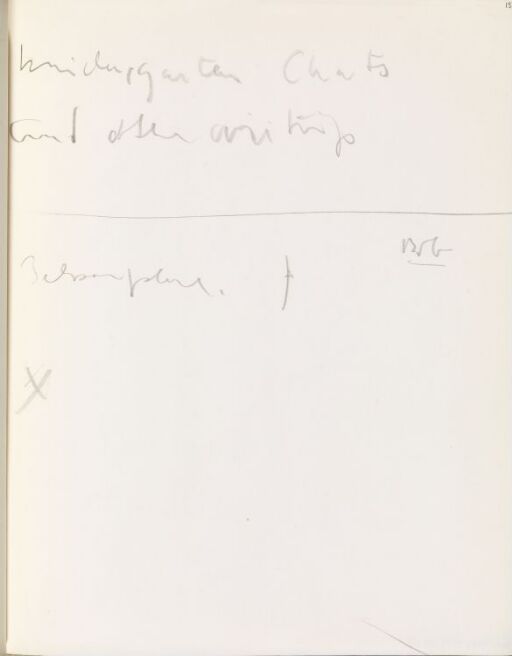 15
kindergarten Charts
and other writings
Bob